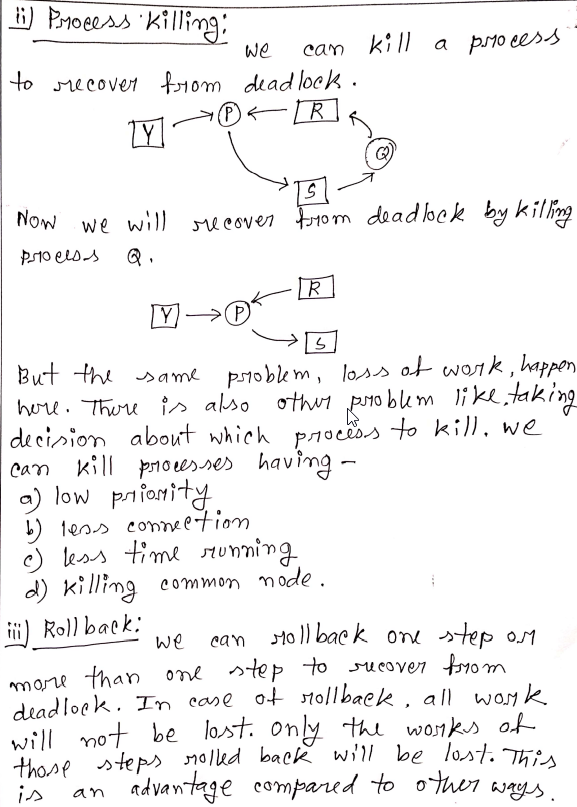 ii) Process killing:
we can kill a process
to recover from deadlock.
Y P R
Q
S
Now we will recover from deadlock by killing
process Q.
R
Y P
S
But the same problem, loss of work, happen
here. There is also other problem like, taking
decision about which process to kill. we
can kill processes having -
a) low priority
b) less connection
c) less time running
d) killing common node.
iii) Rollback:
we can rollback one step or
more than one step to recover from
deadlock. In case of rollback, all work
will not be lost. only the works of
those steps rolled back will be lost. This
is an advantage compared to other ways.